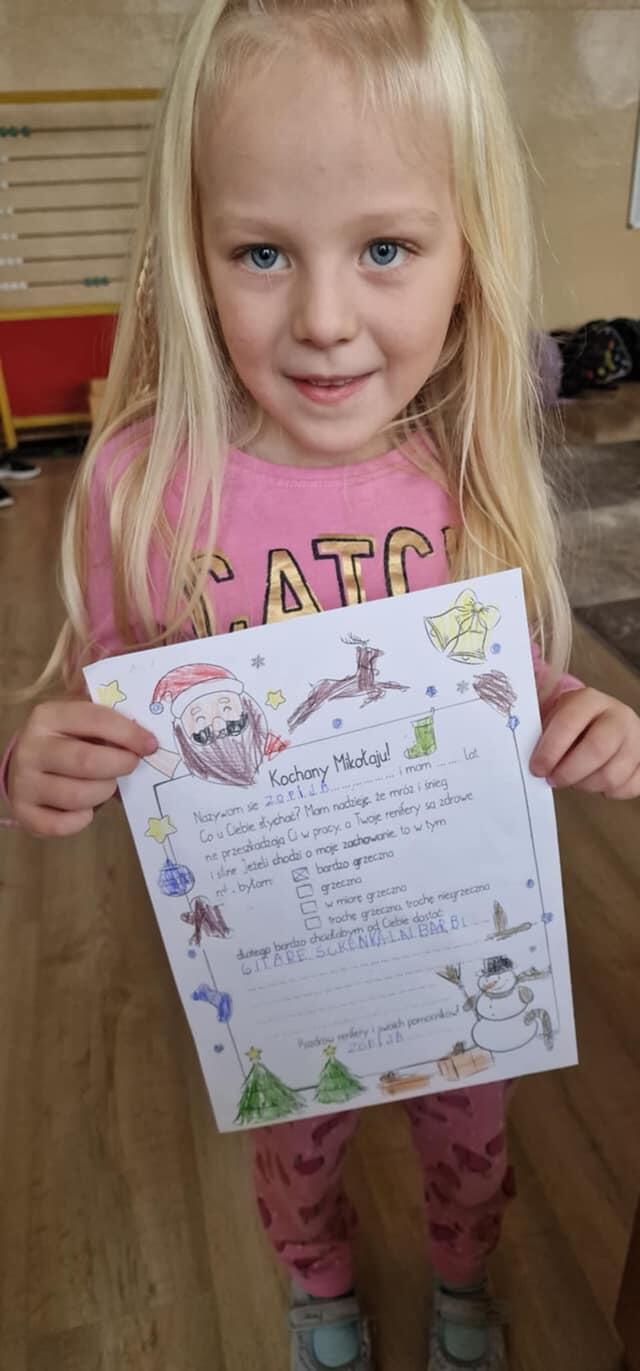 CATCH
Kochany Mikołaju!
Nazywam się ZOFIJA i mam ...... lat.
Co u Ciebie słychać? Mam nadzieję, że mróz i śnieg
nie przeszkadzają Ci w pracy, a Twoje renifery są zdrowe
i silne. Jeżeli chodzi o moje zachowanie, to w tym
byłam:
bardzo grzeczna
grzeczna
w miarę grzeczna
trochę grzeczna, trochę niegrzeczna
dlatego bardzo chciałabym od Ciebie dostać:
GITARE SUKENKA LAL BARBI
Pozdrów renifery i swoich pomocników!
ZOFIJA